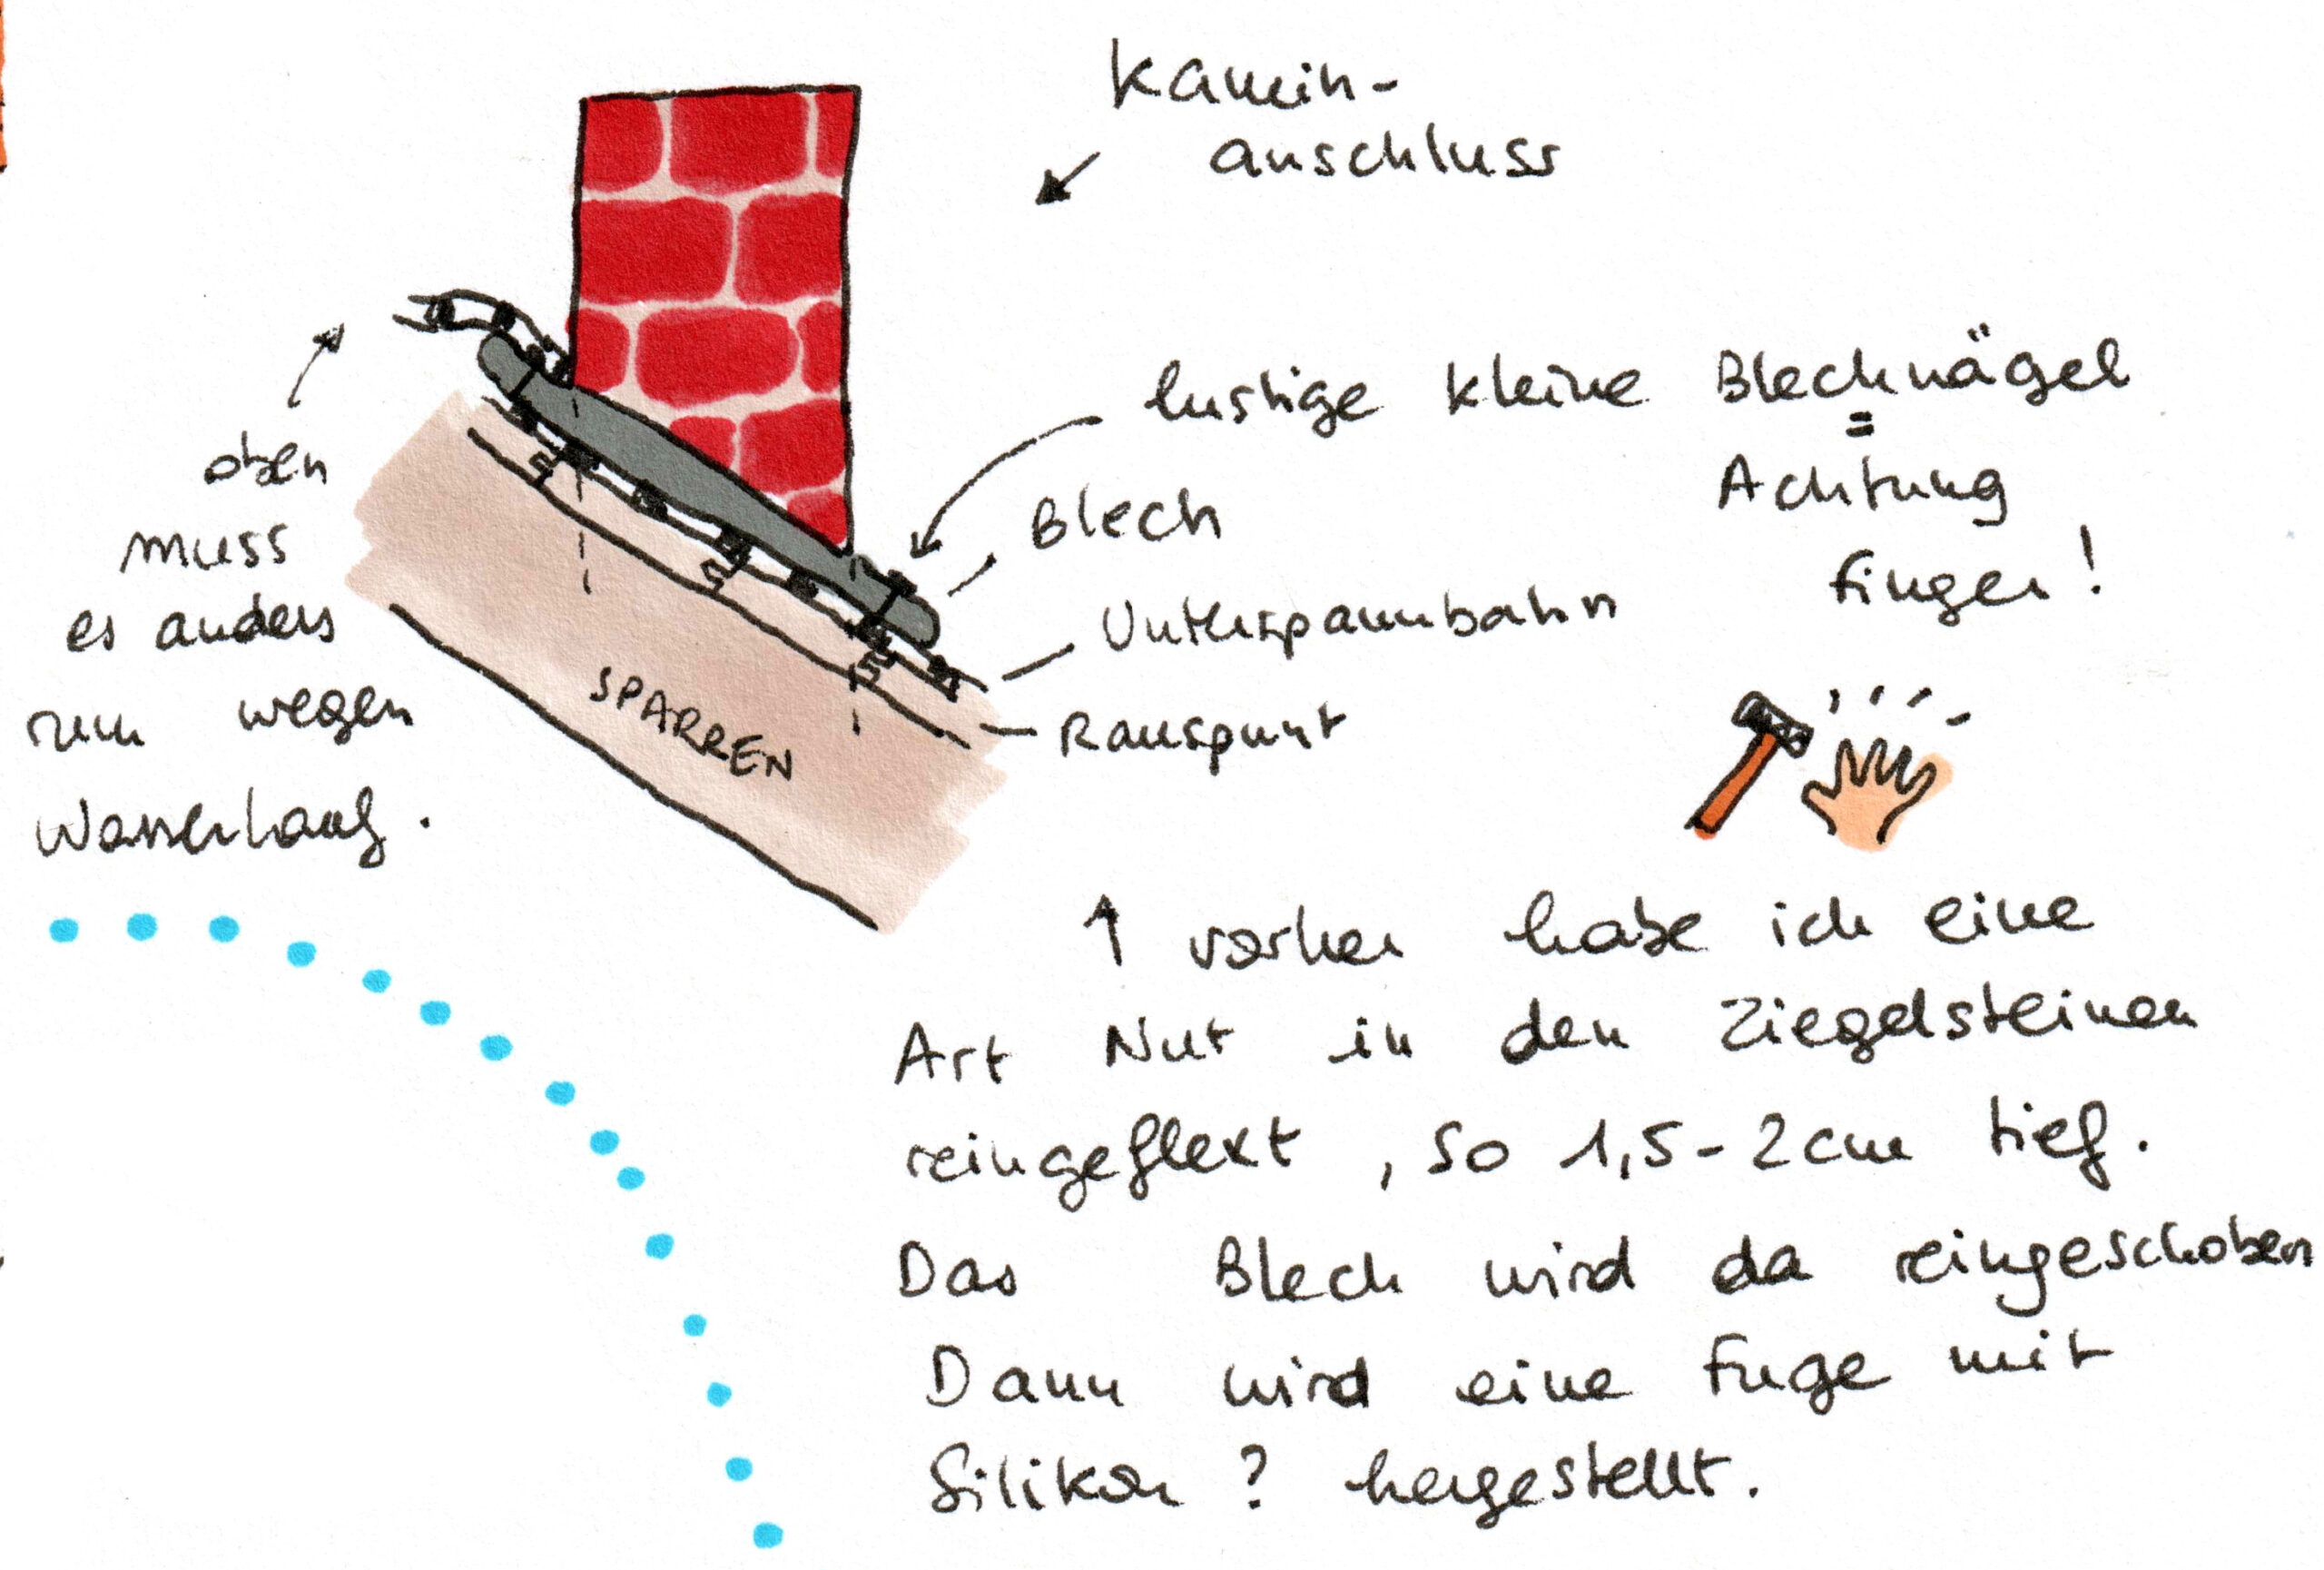 Kamin-
anschluss
lustige kleine Blechnägel
=
Achtung
Finger!
Blech
Unterspannbahn
Rauspunt
SPARREN
oben
muss
es anders
rum wegen
Wasserlauf.
↑ vorher habe ich eine
Art Nut in den Ziegelsteinen
reingeflext, so 1,5-2cm tief.
Das Blech wird da reingeschoben
Dann wird eine Fuge mit
Silikon? hergestellt.